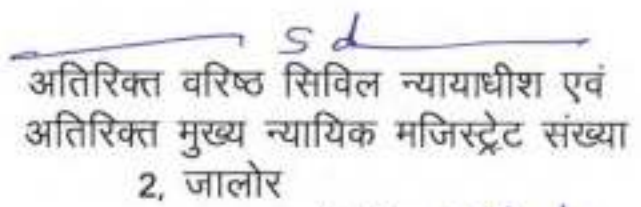 sd
अतिरिक्त वरिष्ठ सिविल न्यायाधीश एवं
अतिरिक्त मुख्य न्यायिक मजिस्ट्रेट संख्या
2, जालोर